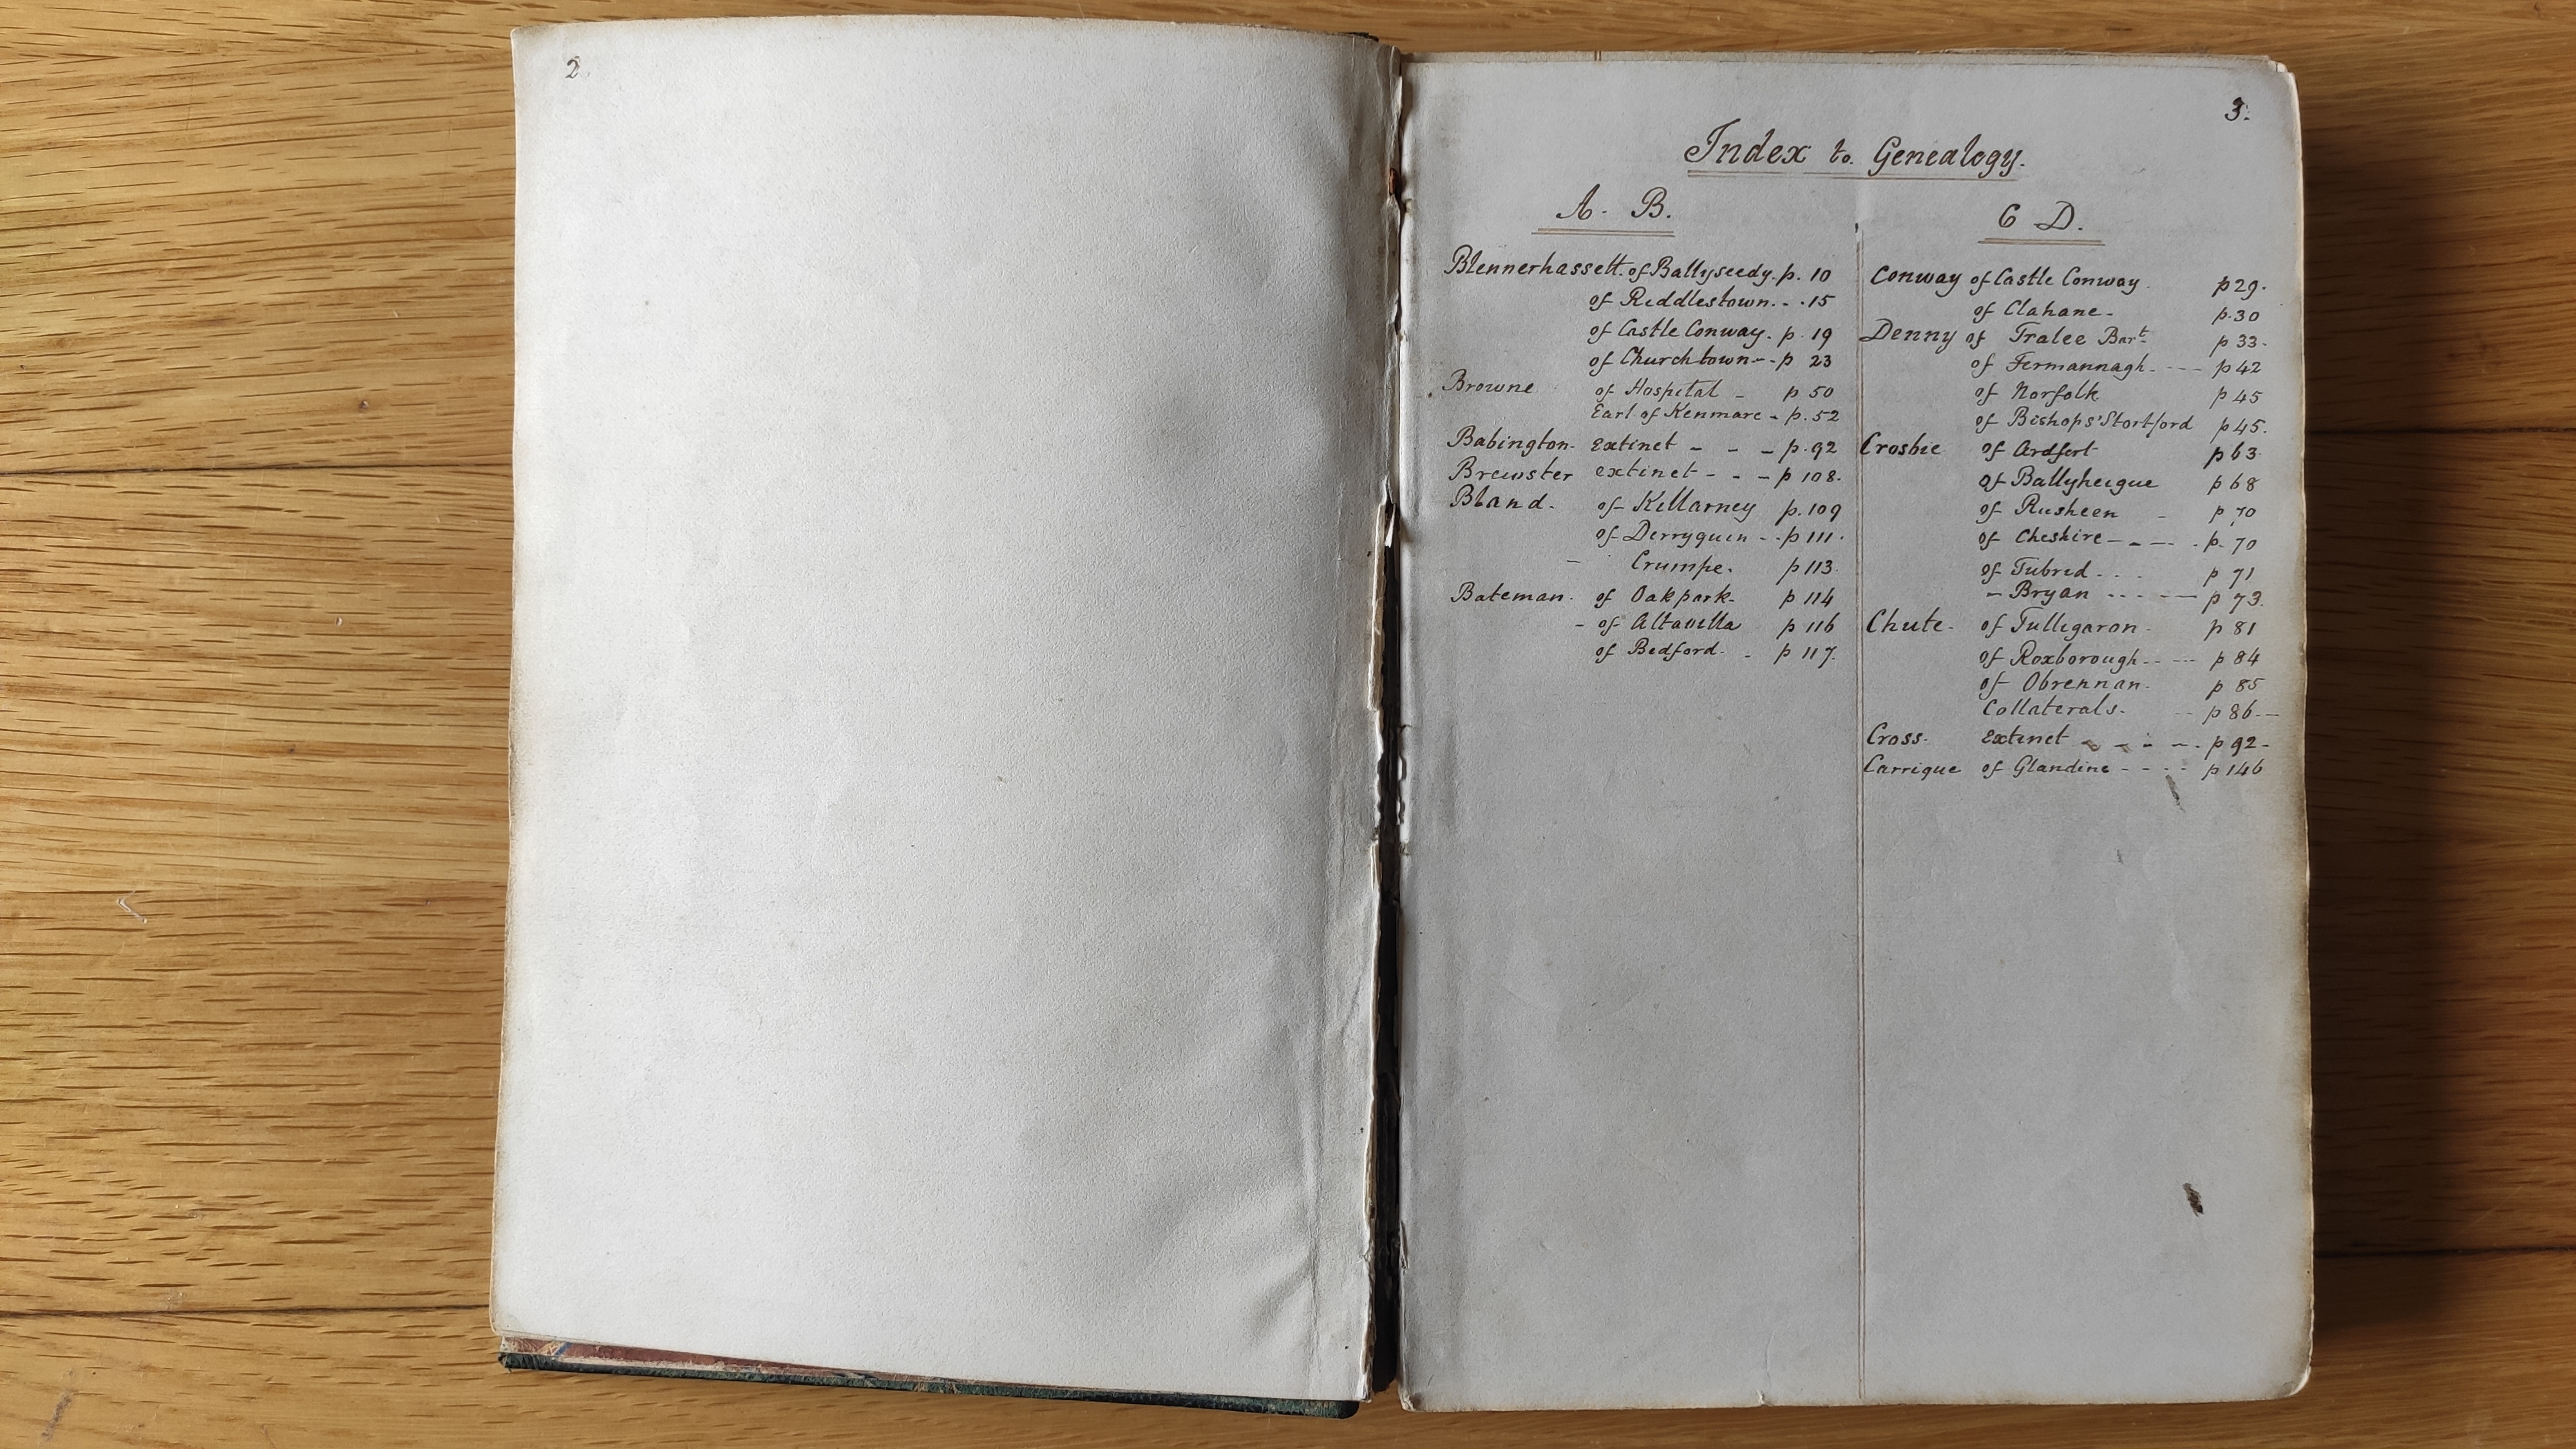 2.
3.
Index to Genealogy.
A. B.
Blennerhassett. of Ballyseedy. p. 10
of Riddlestown. - . 15
of Castle Conway. p. 19
of Churchtown - - p 23
Browne of Hospital - p 50
Earl of Kenmare - p. 52
Babington. Extinct - - - p. 92
Brewster extinct - - - p 108.
Bland. of Killarney p. 109
of Derryquin - - p 111.
- Crumpe. p 113.
Bateman. of Oakpark- p 114
- of Altavilla p 116
of Bedford. - p 117.
C D.
Conway of Castle Conway. p 29.
of Clahane - p. 30
Denny of Tralee Bart. p 33.
of Fermannagh. - - - p 42
of Norfolk p 45
of Bishops' Stortford p 45.
Crosbie of Ardfert p 63
of Ballyheigue p 68
of Rusheen - p 70
of Cheshire - - - - . p. 70
of Tubrid. . . p 71
- Bryan - - - - - p 73.
Chute. of Tulligaron. p 81
of Roxborough. - - - p 84
of Obrennan. p 85
Collaterals. - - p 86. -
Cross. Extinct - - - - . p 92 -
Carrigue of Glandine - - - - p 146